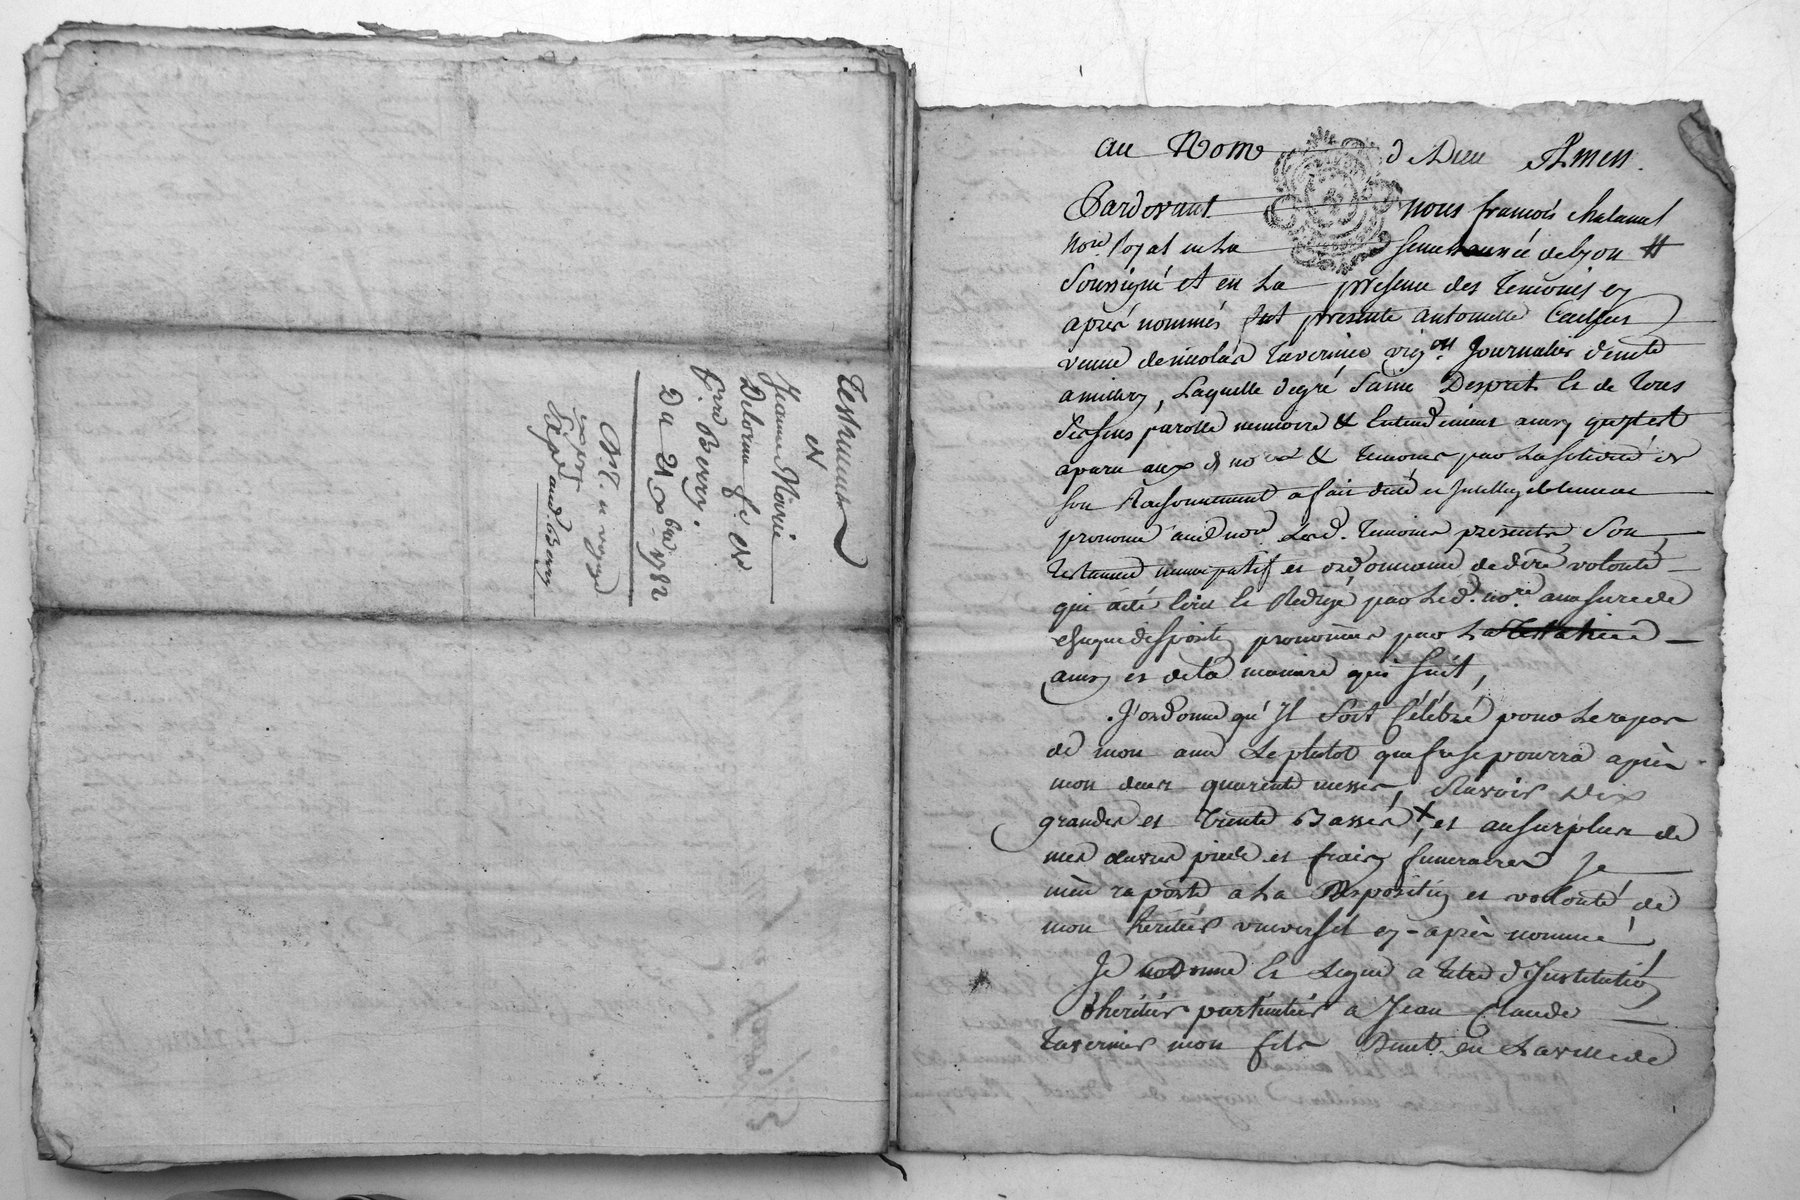 Testament
de
Jeanne Marie
Delorme fe. de
Du 21 xbre 1782
au Nom de Dieu Amen.
Pardevant nous françois chalamel
Nore. Royal en La Senechaussée de Lyon #
Soussigné et en La presence des temoins cy
après nommés fut presente antoinette
veuve de nicolas tavernier vigon. Journalier de
amillery, Laquelle de gré Saine Desprit et de tous
Ses sens parolle memoire & Entendement ainsy quil est
aparu aux d no re & temoins par La Solidité de
Son Raisonnement a fait dicté et Intelligiblement
prononcé audt nore. Lesd. temoins presents Son
testament nuncupatif et ordonnance de dre volonté
qui a été Ecrit et Redigé par Led. nore. amesure de
chaque disposition prononcée par La testatrice
ainsy et de la maniere qui Suit,
J'ordonne qu'Il Soit Célébré pour Le repos
de mon ame Le plutot que fre se pourra après
mon deces quarente messes, Sçavoir Dix
grandes et trente Basses +, et au surplus de
mes œuvres pies et frais funeraires Je
m'en raporte a La Disposition et volonté de
mon heritier universel cy-après nommé
Je donne et Legue a titre d'Institution
d'heritier particulier a Jean Claude
tavernier mon fils en La ville de